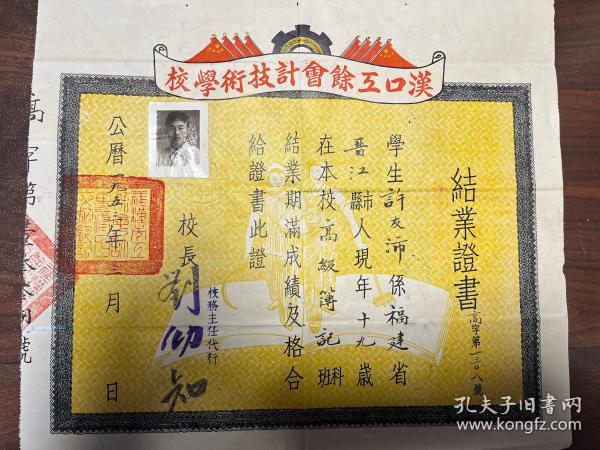 漢口工餘會計技術學校
結業證書
高字第一三〇八號
學生許友沛係福建省
晋江縣市人現年十九歲
在本校高級簿記科班
結業期滿成績及格合
給證書此證
校長劉仰知
校務主任代行
公曆一九五 年三月 日
高字第 號
孔夫子旧书网
www.kongfz.com